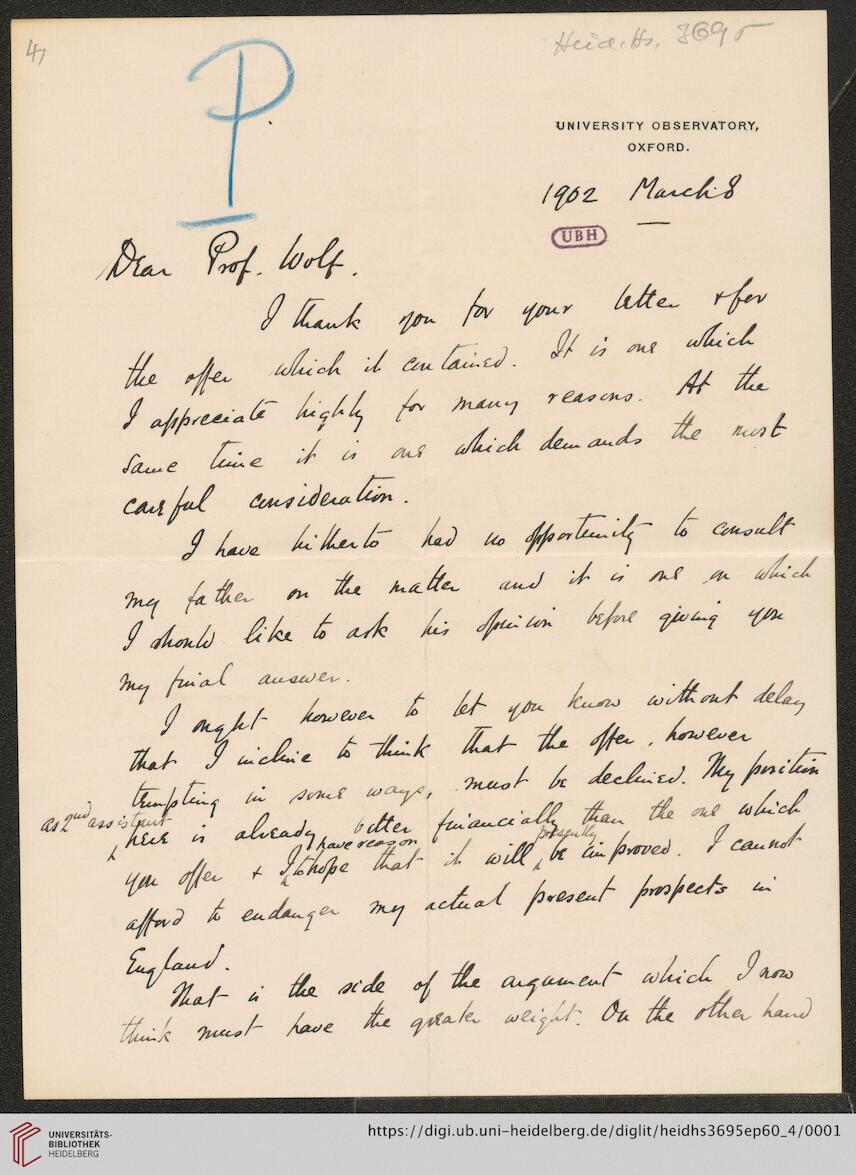 4,
Heid. Hs. 3695
P
UNIVERSITY OBSERVATORY,
OXFORD.
1902 March 8
UBH
Dear Prof. Wolf.
I thank you for your letter & for
the offer which it contained. It is one which
I appreciate highly for many reasons. At the
same time it is one which demands the most
careful consideration.
I have hitherto had no opportunity to consult
my father on the matter and it is one on which
I should like to ask his opinion before giving you
my final answer.
I ought however to let you know without delay
that I incline to think that the offer, however
tempting in some ways, must be declined. My position
as 2nd assistant
here is already better financially than the one which
have reason presently
you offer & I to hope that it will be improved. I cannot
afford to endanger my actual present prospects in
England.
That is the side of the argument which I now
think must have the greater weight. On the other hand
UNIVERSITÄTS-
BIBLIOTHEK
HEIDELBERG
https://digi.ub.uni-heidelberg.de/diglit/heidhs3695ep60_4/0001